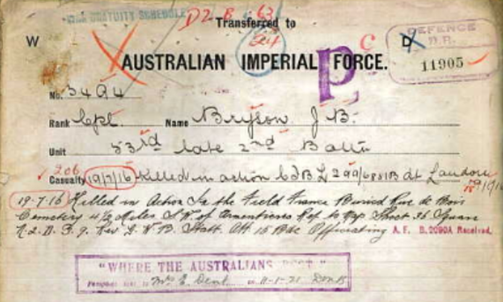 WAR GRATUITY SCHEDULE D2 B 63
Transferred to
W D
AUSTRALIAN IMPERIAL FORCE.
P c
DEFENCE
11905
No. 3494
Rank Cpl Name Bryson J. B.
Unit 53rd late 2nd Battn
Casualty 19/7/16 Killed in action
19-7-16 Killed in Action In the Field France Buried Rue de Bois
Cemetery 4½ Miles S.W. of Armentieres Ref to Map Sheet 36 Square
Officiating A.F. B.2090A Received.
"WHERE THE AUSTRALIANS REST"
Mrs E. Dent 11-1-21